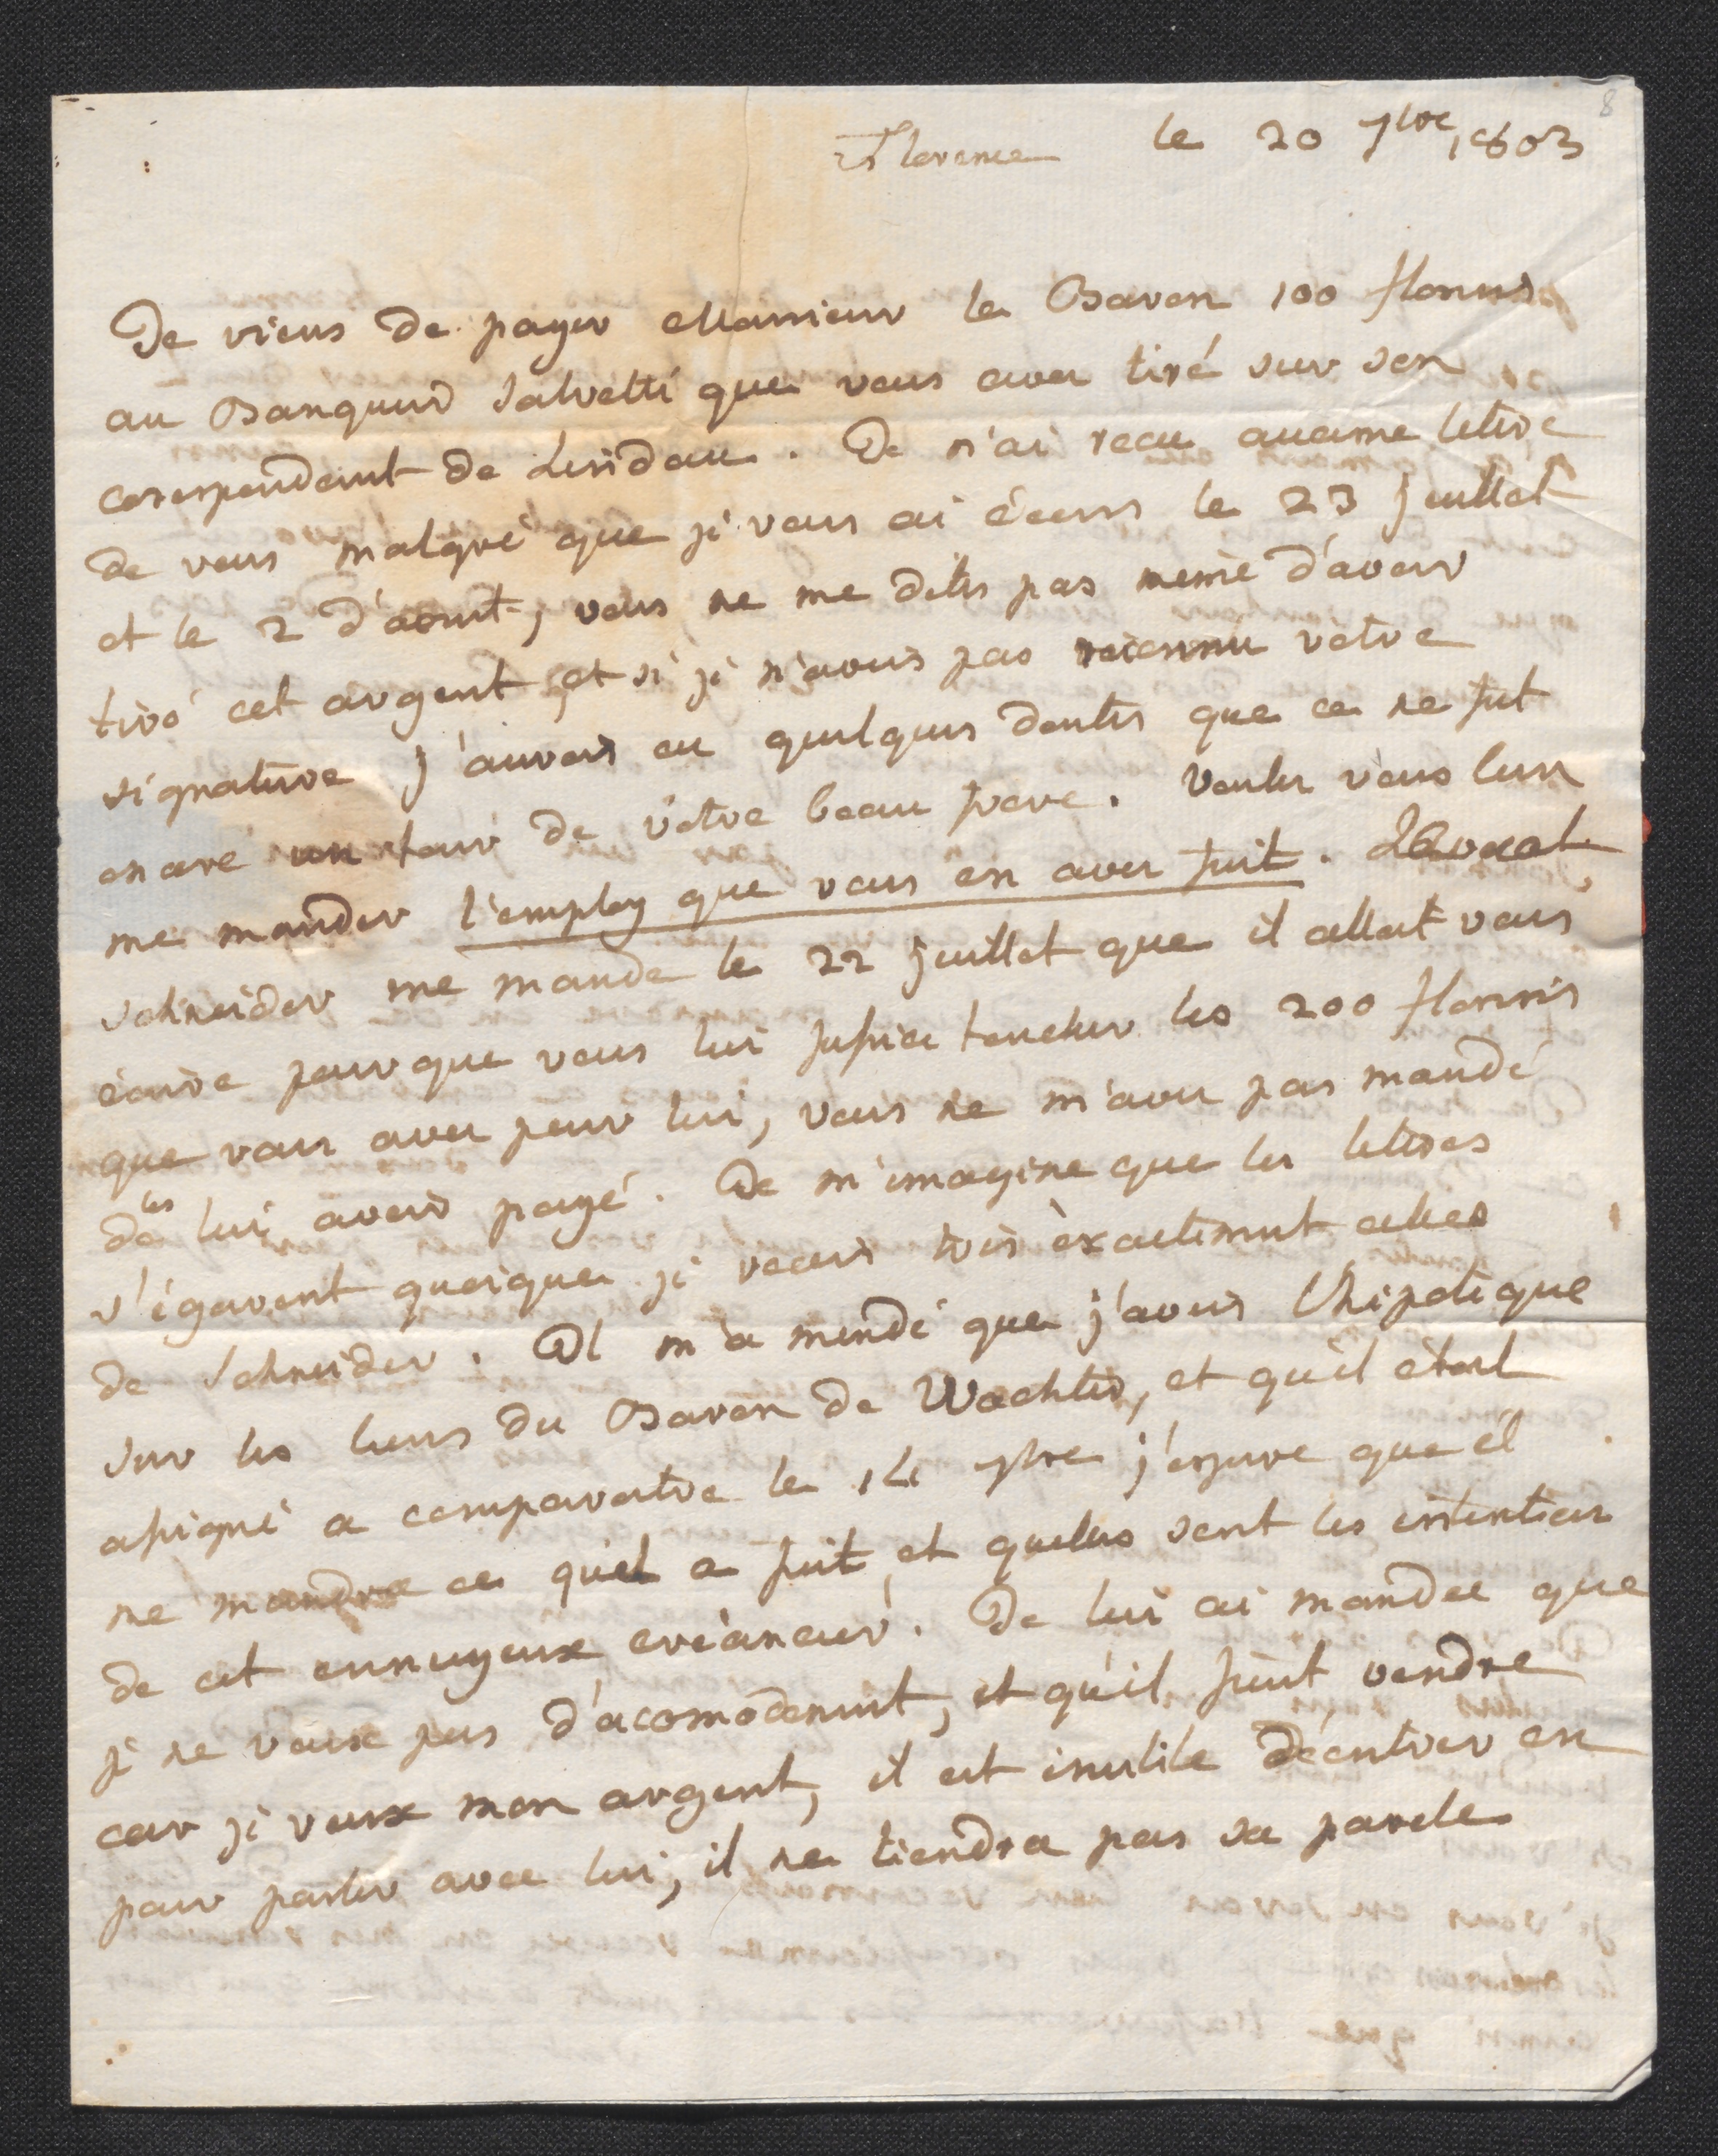 8
Florence le 20 7bre 1803
Je viens de payer Monsieur le Baron 100 florins
au Banquier Salvetti que vous avez tiré sur son
corespondant de Lindau. Je n'ai recu aucune lettre
de vous malgré que je vous ai écris le 23 juillet
et le 2 d'aout, vous ne me dites pas meme d'avoir
tiré cet argent, et si je n'avois pas reconnu votre
signature j'aurois eu quelques doutes que ce ne fut
encore un tour de vôtre beau frere. Voulez vous bien
me mander l'employ que vous en avez fait. L'Avocat
Schneider me mande le 22 juillet que il alloit vous
écrire pour que vous lui fassiez toucher les 200 florins
que vous avez pour lui, vous ne m'avez pas mandé
de les lui avoir payé. Je m'imagine que les lettres
s'égarent quoique je recois très exactement celles
de Schneider. Il m'a mendé que j'avois l'hipoteque
sur les biens du Baron de Wachter, et qu'il étoit
assigné a comparoitre le 14 7bre j'espere que il
me mandra ce qu'il a fait et quelles sont les intention
de cet ennuyeux créancier. Je lui ai mandée que
je ne veux pas d'acomodement, et qu'il faut vendre
car je veux mon argent, il est inutile d'entrer en
pour parler avec lui, il ne tiendra pas sa parole